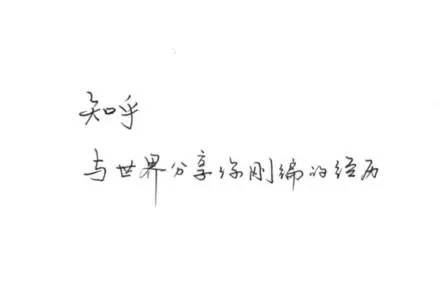 知乎
与世界分享你刚编的经历